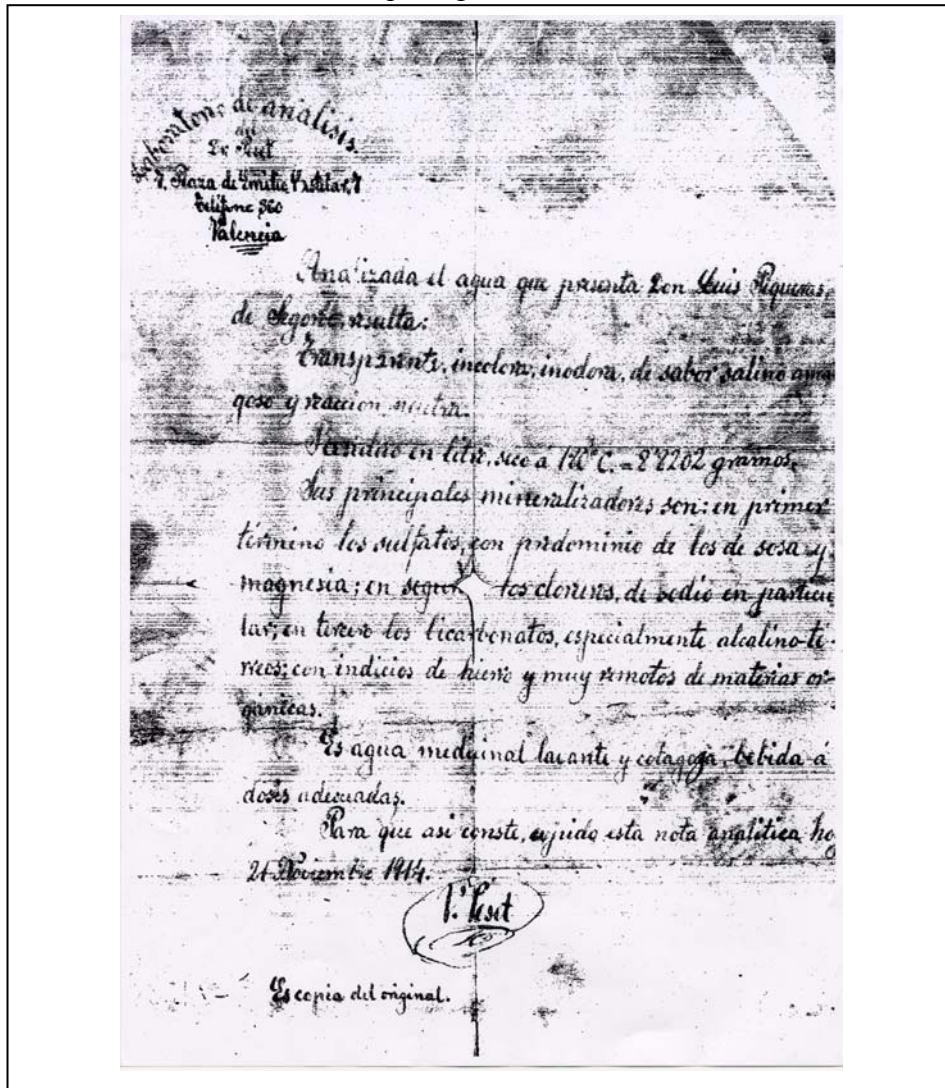 Laboratorio de análisis
del
Dr. Peset
7, Plaza de Emilio Castelar, 7
Teléfono 360
Valencia
Analizada el agua que presenta Don Luis Piqueras,
de Segorbe, resulta:
Transparente, incolora, inodora, de sabor salino amar
goso y reaccion neutra.
Residuo en litro, seco á C. = gramos.
Sus principales mineralizadores son: en primer
término los sulfatos, con predominio de los de sosa y
magnesia; en segun los cloruros, de sodio en particu
lar; en tercero los bicarbonatos, especialmente alcalino-té-
rreos; con indicios de hierro y muy remotos de materias or-
gánicas.
Es agua medicinal laxante y colagoga, bebida á
dosis adecuadas.
Para que asi conste, expido esta nota analítica hoy
21 Noviembre 1914.
Peset
Es copia del original.